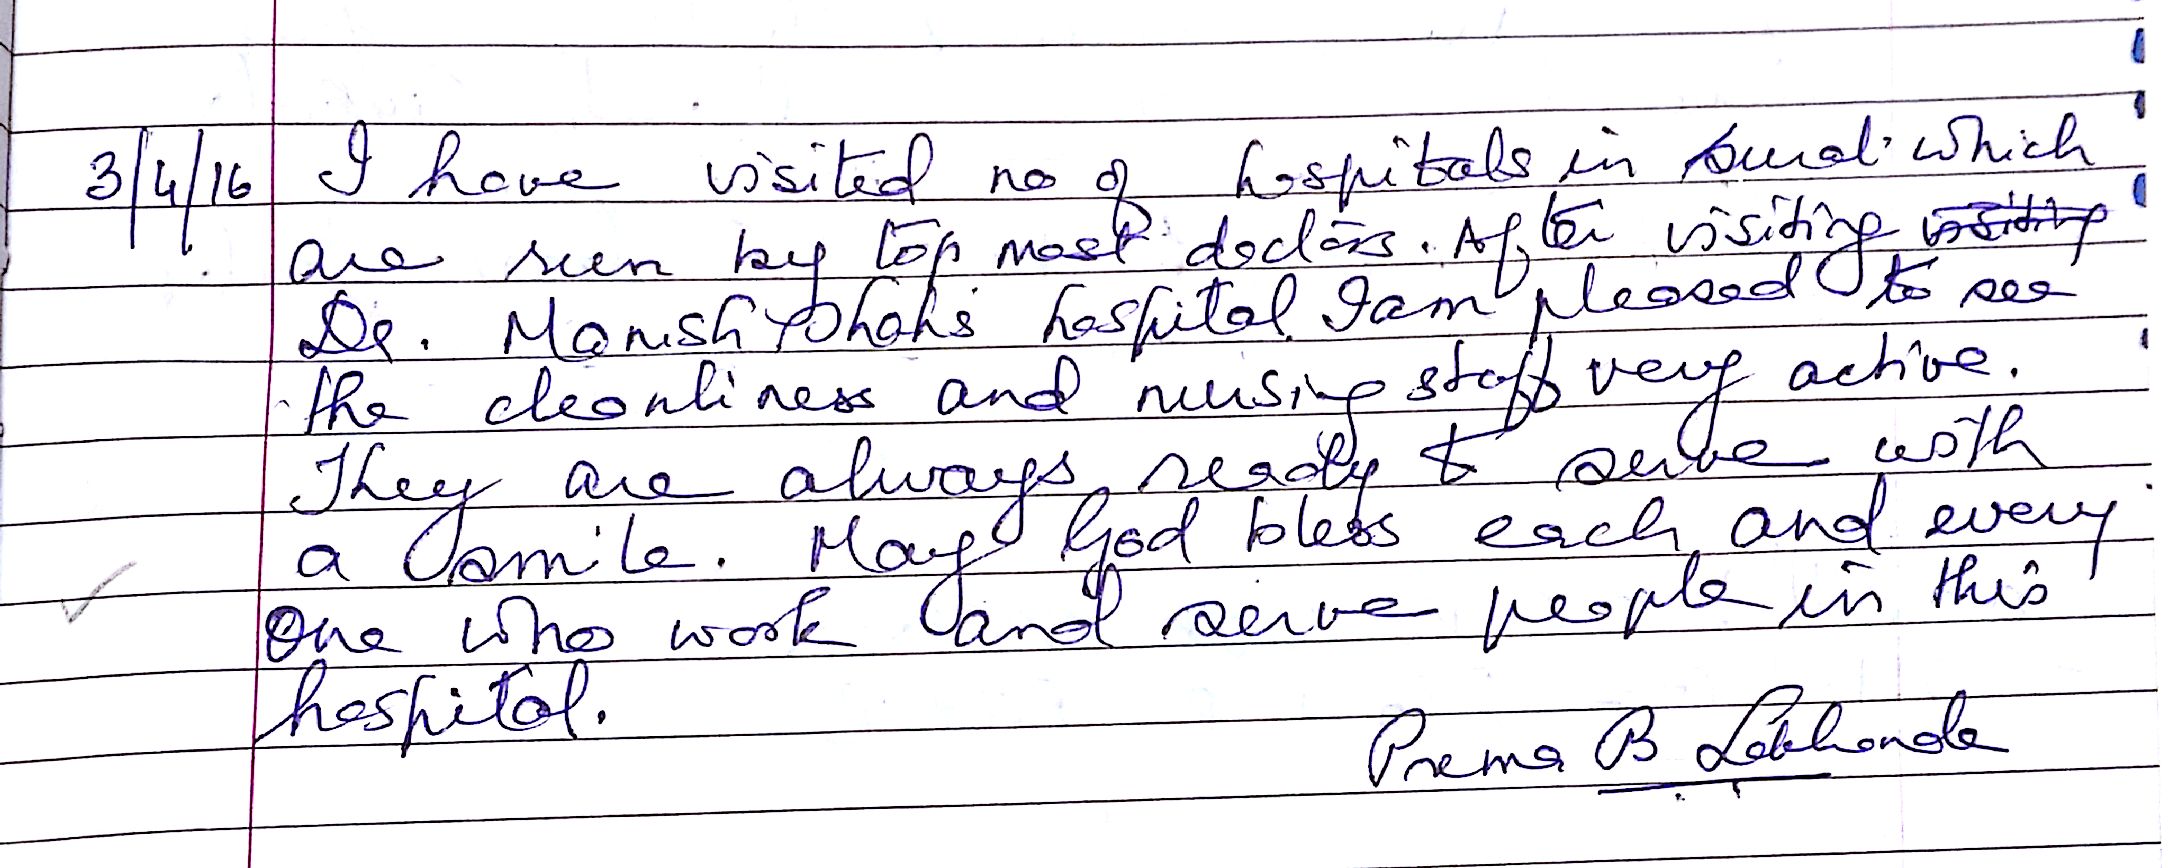 3/4/16 I have visited no of hospitals in Surat which
are run by top most doctors. After visiting
Dr. Manish Shah's hospital I am pleased to see
the cleanliness and nursing staff very active.
They are always ready to serve with
a smile. May God bless each and every
one who work and serve people in this
hospital.
Prema B